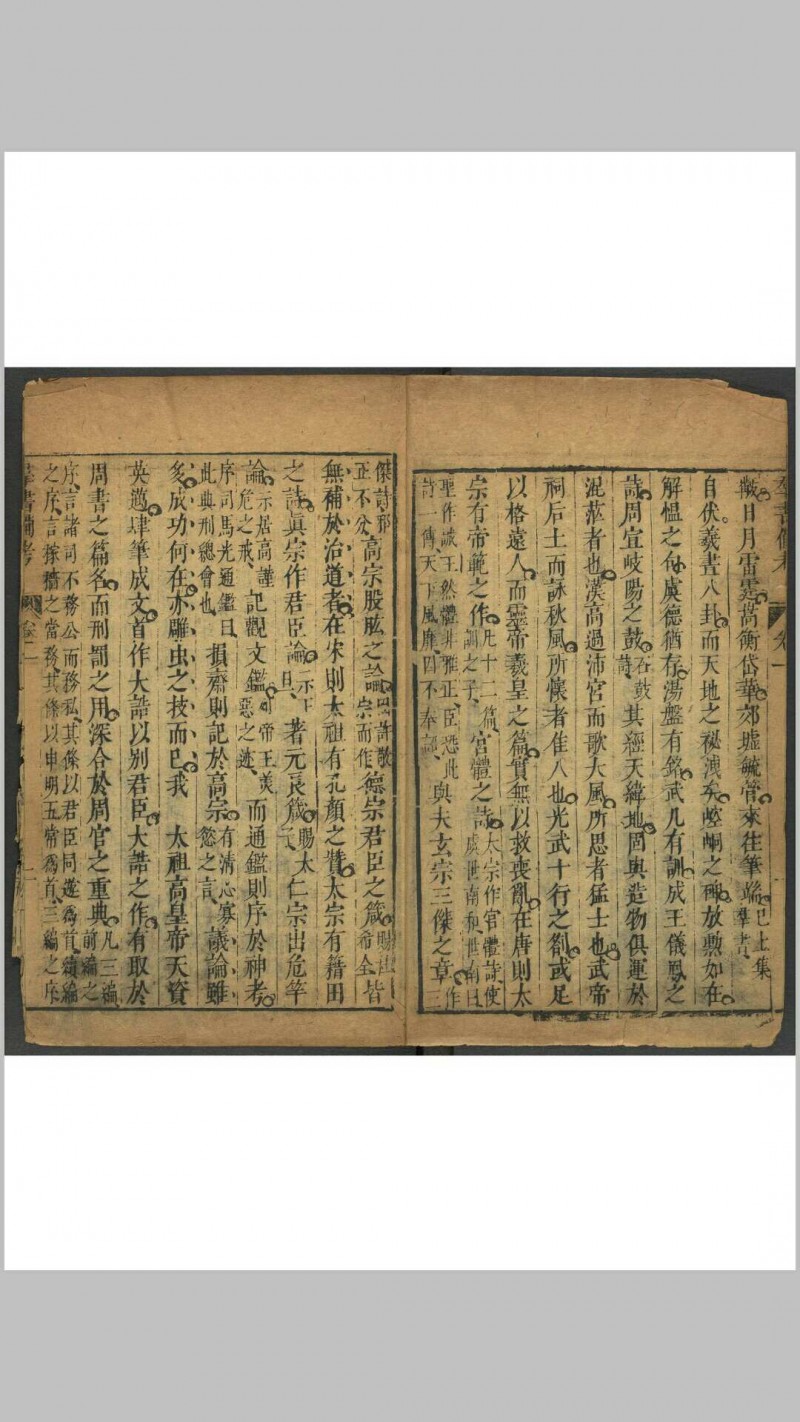 羣書備考 卷一
皦日月雷霆嵩衡岱華郊墟毓管來往筆端已上集羣書
自伏羲畫八卦而天地之祕洩矣崆峒之碑放勲如在
解慍之句虞德猶存湯盤有銘武几有訓成王儀鳳之
詩周宣岐陽之鼓石鼓詩其經天緯地固與造物俱運於
混茫者也漢高過沛宮而歌大風所思者猛士也武帝
祠后土而詠秋風所懷者佳人也光武十行之劄或足
以格遠人而靈帝羲皇之篇實無以救喪亂在唐則太
宗有帝範之作凡十二篇訓之子宮體之詩太宗作宮體詩使虞世南和世南曰
聖作誠工然體非雅正臣恐此詩一傳天下風靡因不奉詔與夫玄宗三傑之章作三
傑詩邪正不分高宗股肱之論許敬宗而作德宗君臣之箴賜杜希全皆
無補於治道者在宋則太祖有孔顏之贊太宗有籍田
之詩眞宗作君臣論示下曰著元良箴賜太子仁宗出危竿
論示居高謹危之戒記觀文鑑帝王美惡之迹而通鑑則序於神考
序司馬光通鑑曰此典刑總會也損齋則記於高宗有清心寡慾之言議論雖
多成功何在亦雕虫之技而已我 太祖高皇帝天資
英邁肆筆成文首作大誥以别君臣大誥之作有取於
周書之篇名而刑罰之用深合於周官之重典凡三編前編之
序言諸司不務公而務私其條以君臣同遊為首續編
之序言稼穡之當務其條以申明五常為首三編之序
羣書備考 卷一 二